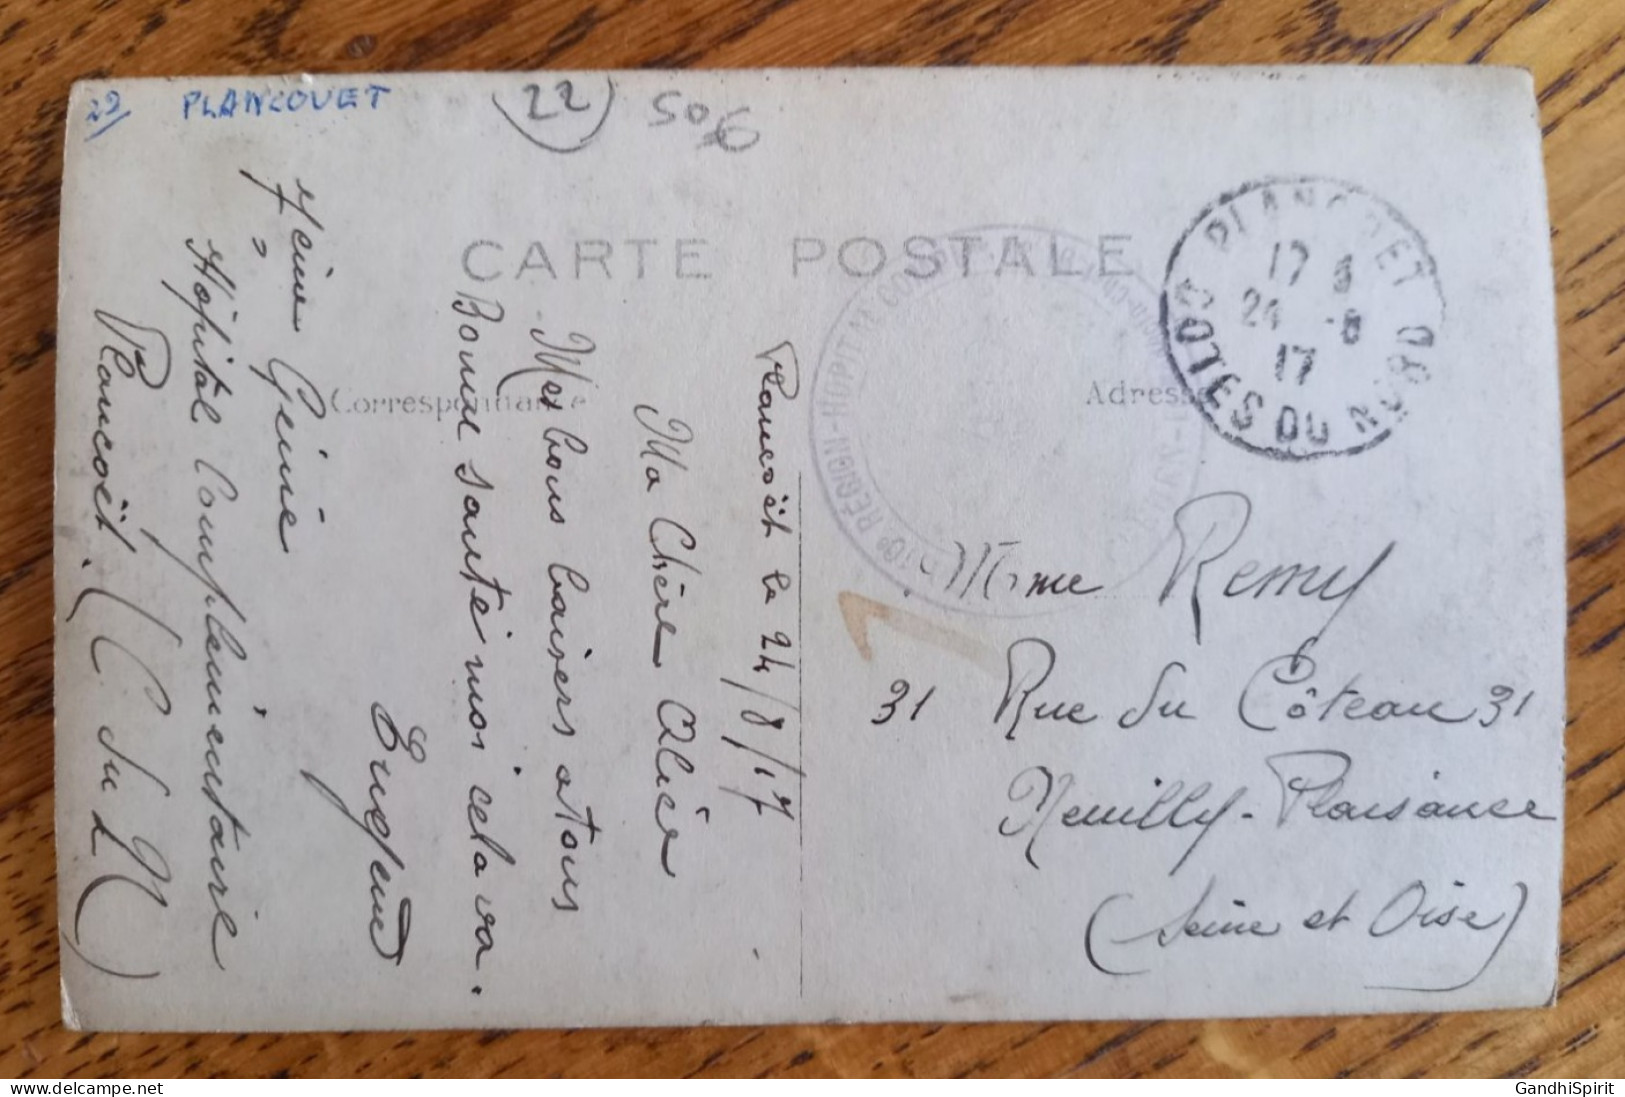 22 PLANCOUET
22
506
CARTE POSTALE
Correspondance
Adresse
PLANCOET
17
24 -8
17
COTES DU NORD
10e RÉGION-HÔPITAL
Plancoët le 24/8/17
Ma Chère Alice
Mes bons baisers a tous
Bonne santé moi cela va.
Eugène
7ème Génie
Hôpital Complémentaire
Plancoët. (C. du N)
Mme Remy
31 Rue du Côteau 31
Neuilly-Plaisance
(Seine et Oise)
GandhiSpirit